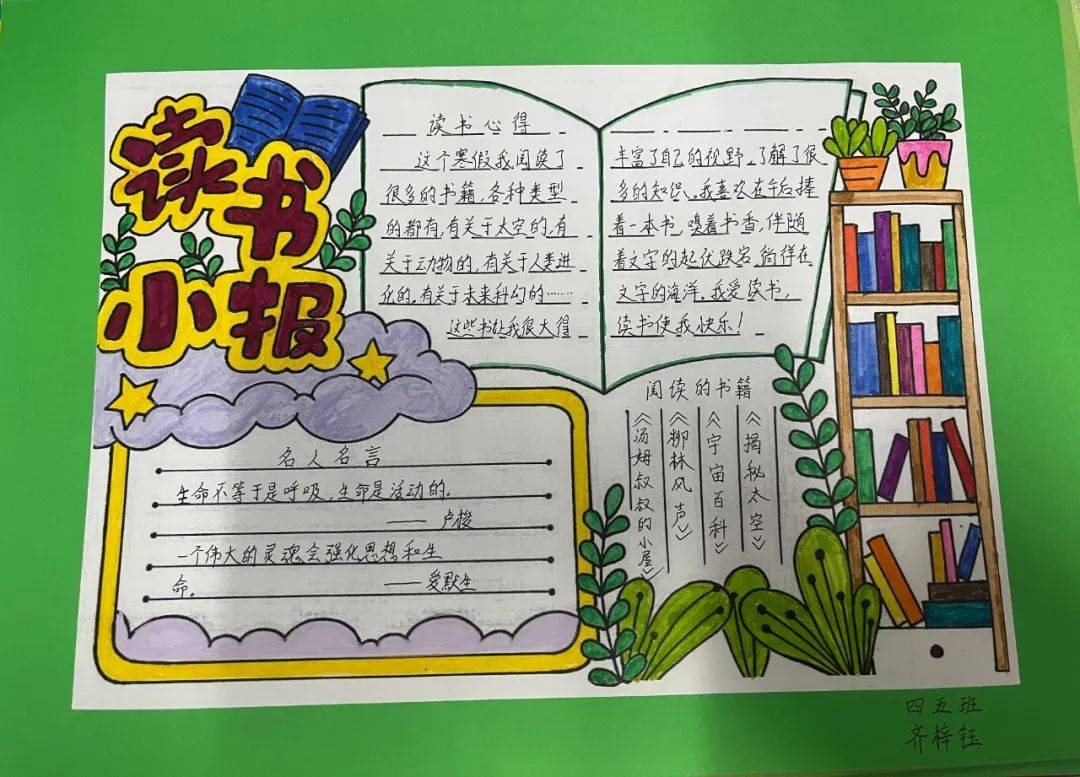 读书
小报
读书心得
这个寒假我阅读了
很多的书籍，各种类型
的都有，有关于太空的，有
关于动物的，有关于人类进
化的，有关于未来科幻的……
这些书让我很大得
丰富了自己的视野，了解了很
多的知识。我喜欢在午后捧
着一本书，嗅着书香，伴随
着文字的起伏跌宕，徜徉在
文字的海洋。我爱读书，
读书使我快乐！
名人名言
生命不等于是呼吸，生命是活动的。
——卢梭
一个伟大的灵魂会强化思想和生
命。 ——爱默生
阅读的书籍
《揭秘太空》
《宇宙百科》
《柳林风声》
《汤姆叔叔的小屋》
四五班
齐梓钰